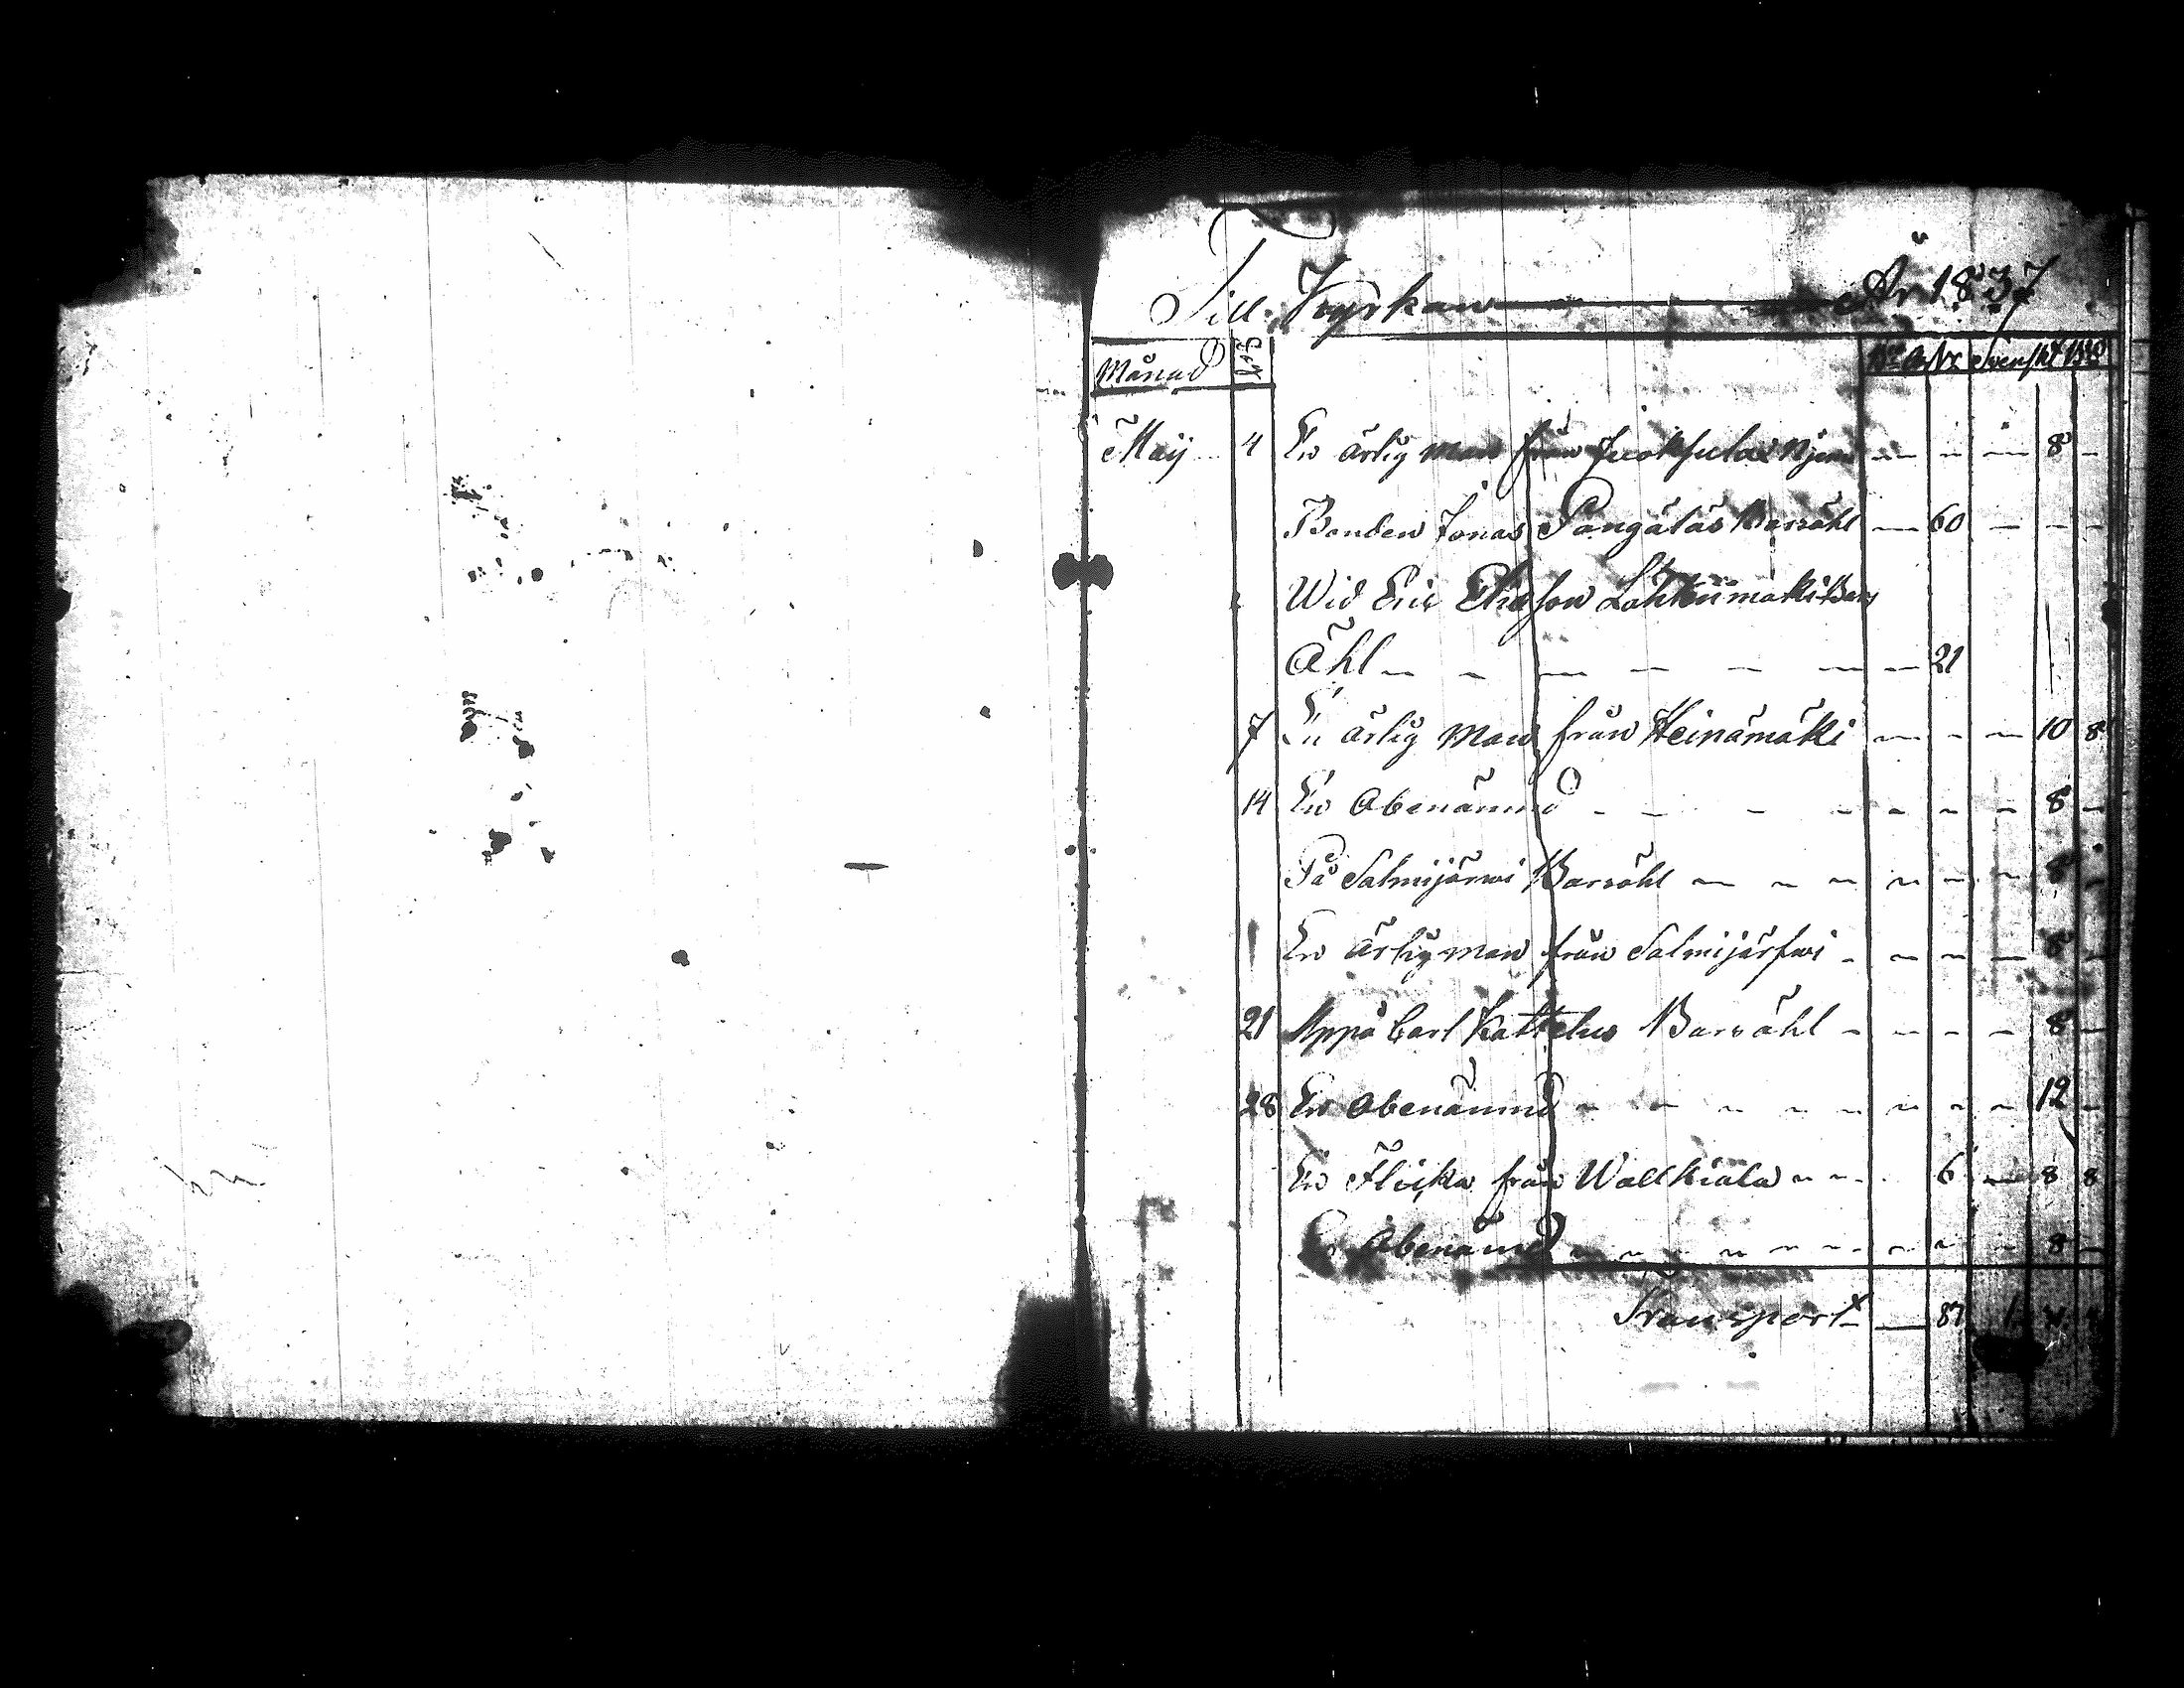 Till Kyrkan År 1837
Månad Dag Bco Ass Svenskt Bco
Maij 4 En ärlig man från — — — 8 —
Bonden Jonas Pangälås Barnöhl — 60 — — —
Wid Eric Eliasson Lohkimäki Barns
Öhl — — — — — — 21
7 En ärlig man från Heinämäki — — — 10 8
14 En Obenämnd — — — — — — — 8 —
På Salmijärwi Barsöhl — — — — — — 8 —
En ärlig man från Salmijärfwi — — — — 8 —
21 Uppå Carl Kattelus Barsöhl — — — — 8 —
28 En Obenämnd — — — — — — — — 12 —
En Flicka från Wallkiala — — — 6 — 8 8
En Obenämd — — — — — — — — — — 8 —
Transport — 87 1